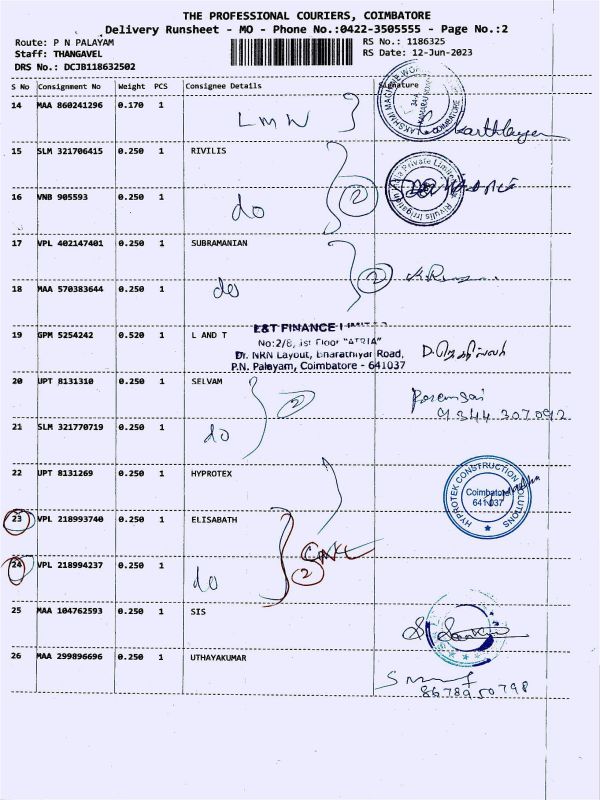 THE PROFESSIONAL COURIERS, COIMBATORE
Delivery Runsheet - MO - Phone No.:0422-3505555 - Page No.:2
Route: P N PALAYAM
RS No.: 1186325
Staff: THANGAVEL
RS Date: 12-Jun-2023
DRS No.: DCJB118632502
S No Consignment No Weight PCS Consignee Details Signature
14 MAA 860241296 0.170 1 LMW
15 SLM 321706415 0.250 1 RIVILIS
16 VNB 905593 0.250 1 do 2
17 VPL 402147401 0.250 1 SUBRAMANIAN
18 MAA 570383644 0.250 1 do 2
19 GPM 5254242 0.520 1 L AND T
L&T FINANCE LIMITED
No:2/8, 1st Floor "ATRIA"
Dr. NRN Layout, Bharathiyar Road,
P.N. Palayam, Coimbatore - 641037
20 UPT 8131310 0.250 1 SELVAM 2
9344 307092
21 SLM 321770719 0.250 1 do
22 UPT 8131269 0.250 1 HYPROTEX
HYPROTEK CONSTRUCTION SOLUTIONS
Coimbatore
641 037
23 VPL 218993740 0.250 1 ELISABATH
24 VPL 218994237 0.250 1 do 2
25 MAA 104762593 0.250 1 SIS
26 MAA 299896696 0.250 1 UTHAYAKUMAR
8678950798